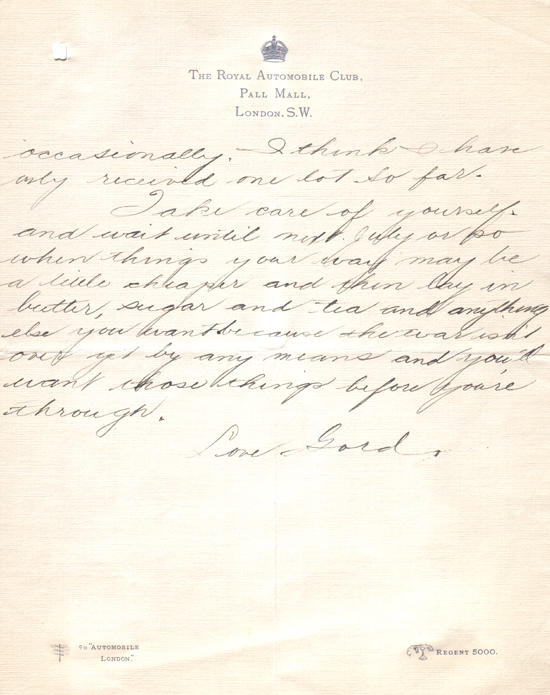 The Royal Automobile Club,
Pall Mall,
London, S.W.
occasionally. I think I have
only received one lot so far.
Take care of yourself
and wait until next July or so
when things your way may be
a little cheaper and then lay in
butter, sugar and tea and anything
else you want because the war isn't
over yet by any means and you'll
want those things before you're
through.
Love Gord.
"Automobile
London."
Regent 5000.